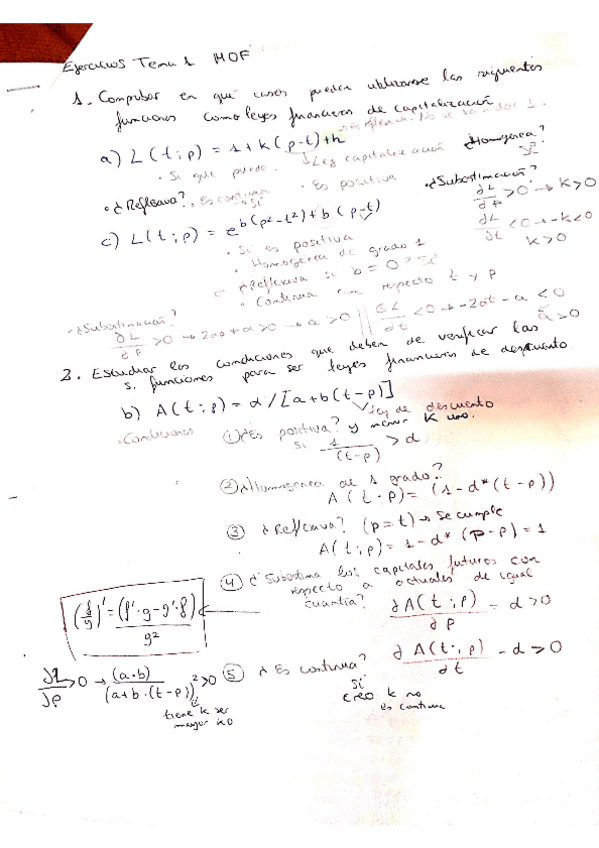 Ejercicios Tema 1 MOF
1. Comprobar en qué casos pueden utilizarse las siguientes
funciones como leyes financieras de capitalización
a) L(t;p) = 1+k(p-t)+h
· Si que puede. Ley capitalización ¿Homogénea?
Si
· ¿Reflexiva? Es continua · Es positiva ¿Subestimación?
Si
∂L/∂p >0 → k>0
c) L(t;p) = e^b(p²-t²)+b(p-t)
∂L/∂t <0 → -k<0
k>0
· Si es positiva
· Homogénea de grado 1
· ¿Reflexiva si b=0? Si
· Continua con respecto t y p
· ¿Subestimación?
∂L/∂p >0 → 2ap+a>0 → a>0 || ∂L/∂t <0 → -2at-a<0
a>0
2. Estudiar las condiciones que deben de verificar las
s. funciones para ser leyes financieras de descuento
b) A(t;p) = α/[a+b(t-p)]
Ley de descuento
· Condiciones ① ¿Es positiva? y menor k uno.
Si 1/(t-p) > d
② ¿Homogenea de 1 grado?
A(t·p) = (1-d*(t-p))
③ ¿Reflexiva? (p=t) → se cumple
A(t;p) = 1-d*(p-p) = 1
④ ¿Subestima los capitales futuros con
respecto a actuales de igual
cuantía? ∂A(t;p)/∂p = d>0
(f/g)' = (f'·g-g'·f)/g²
∂A(t;p)/∂t -d>0
⑤ ¿Es continua?
Si
creo k no
es continua
∂L/∂p >0 → (a·b)/(a+b·(t-p))² >0
tiene k ser
mayor k 0